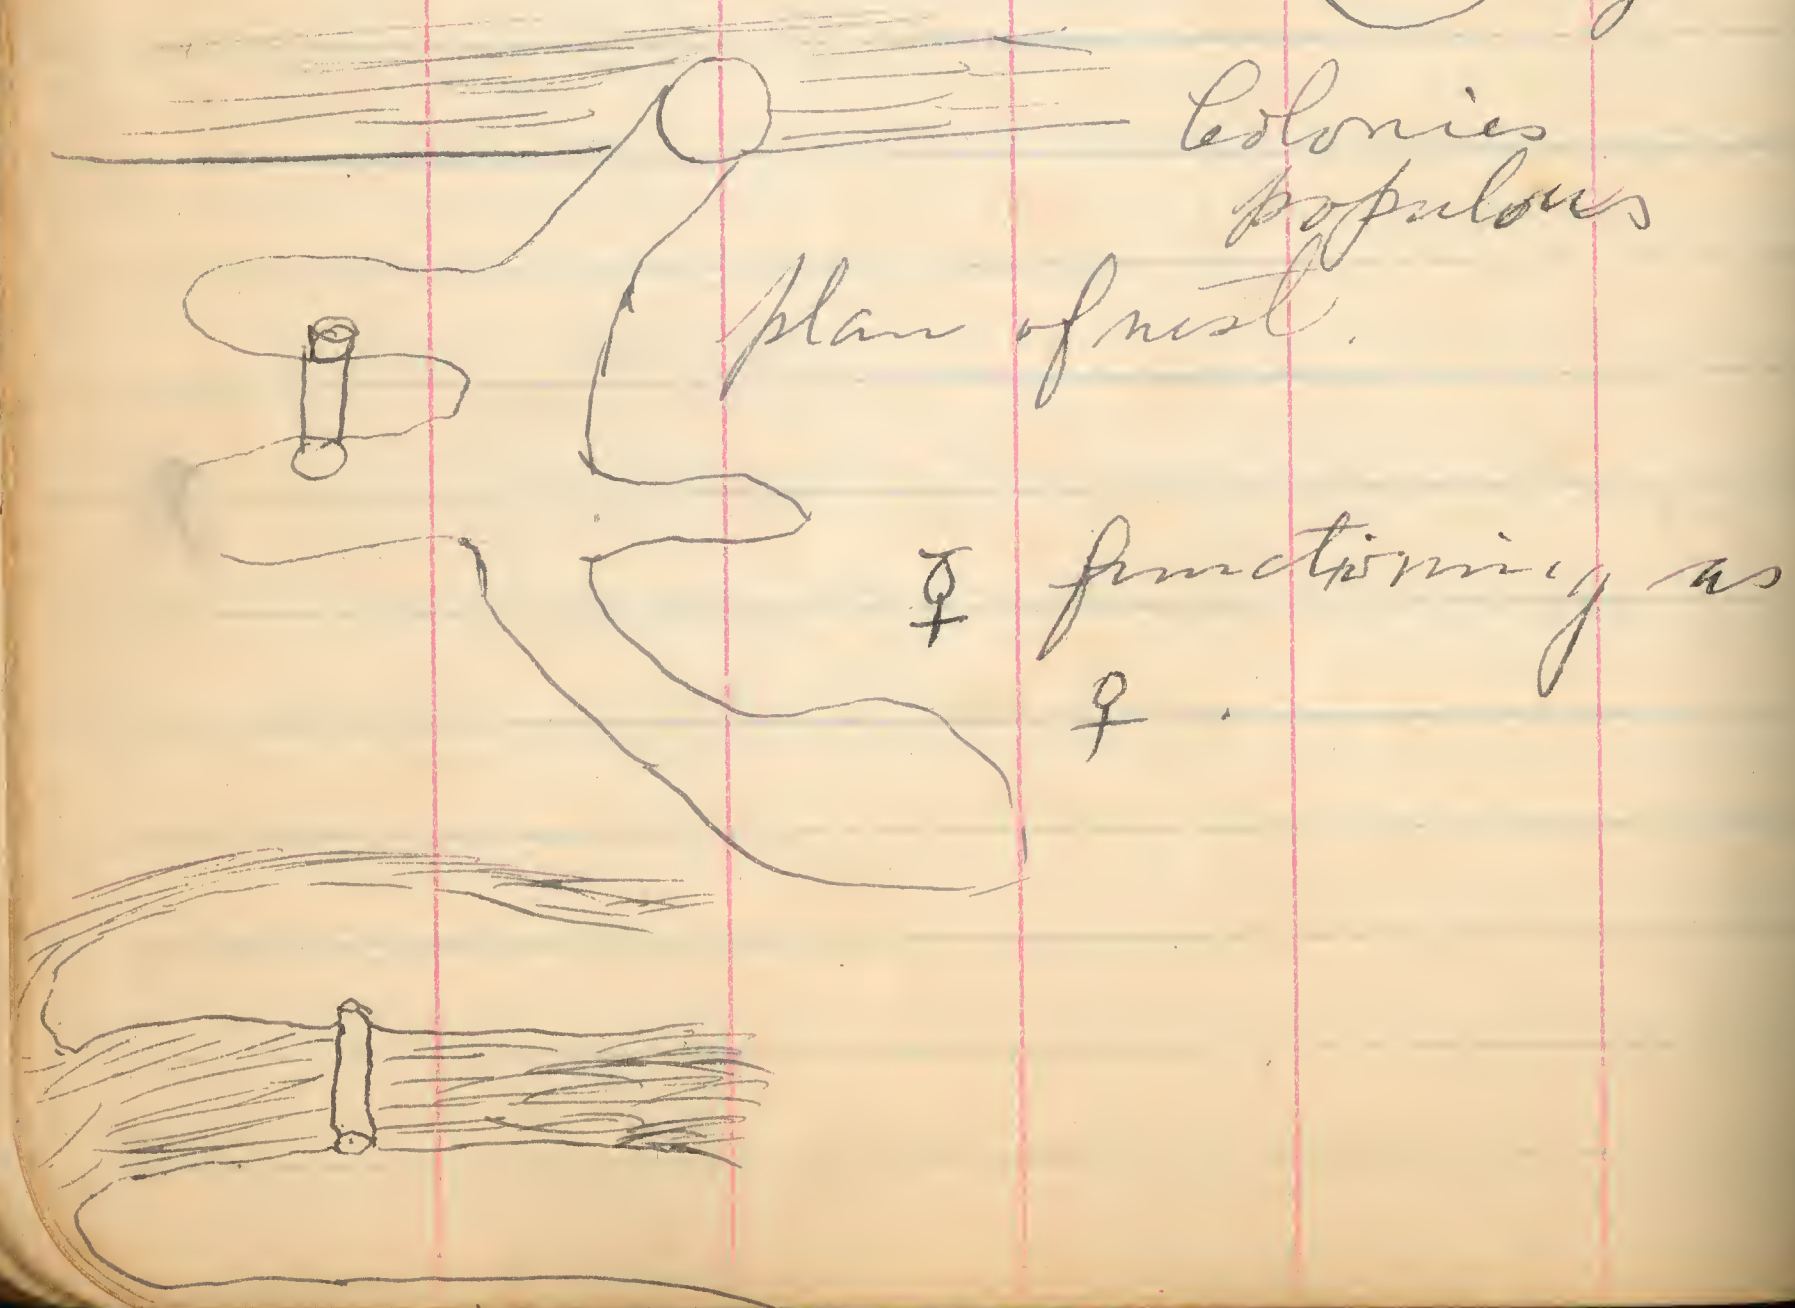 Colonies
populous
plan of nest.
☿ functioning as
♀.